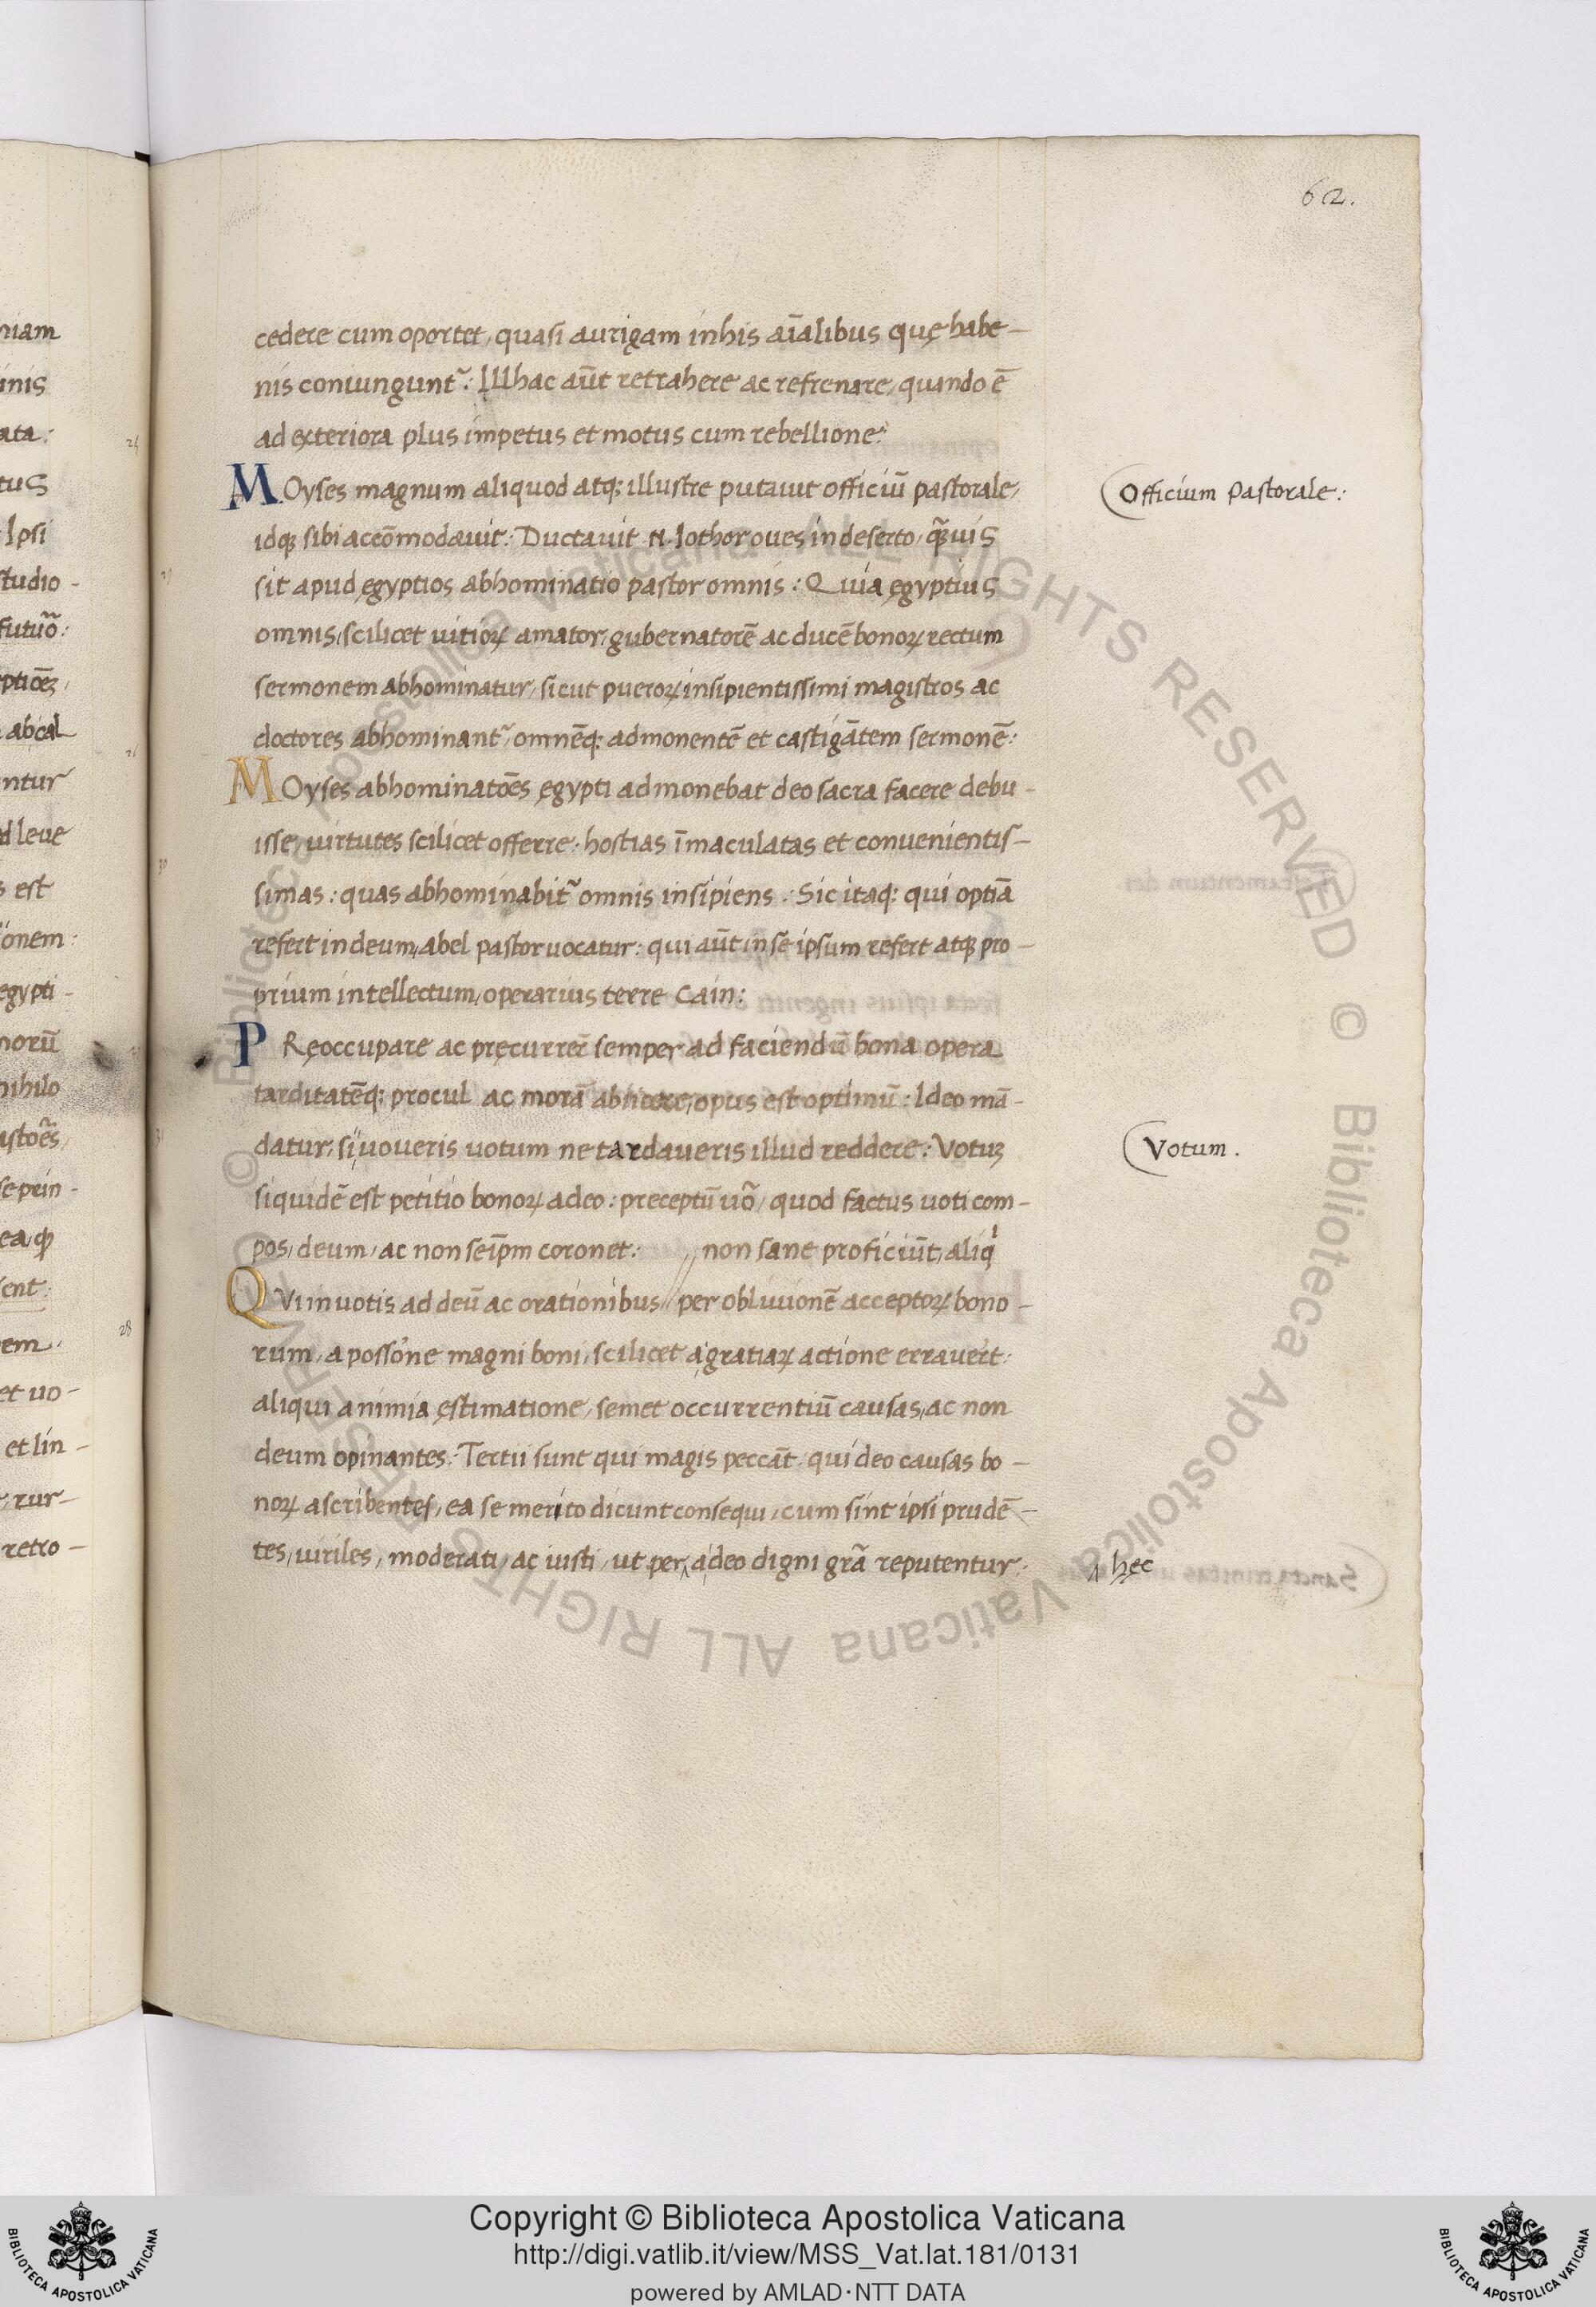 62.
cedere cum oportet, quasi aurigam in his aīalibus quę habe-
nis coniungunt᷑: Illhac aūt retrahere ac refrenare, quando ē
ad exteriora plus impetus et motus cum rebellione:
MOyses magnum aliquod atq; illustre putauit officiū pastorale,
Officium Pastorale:
idq; sibi accōmodauit: Ductauit .n. Iothor oues in deserto, q̄uis
sit apud ęgyptios abhominatio pastor omnis: Quia ęgyptius
omnis, scilicet uitioꝝ amator, gubernatorē ac ducē bonoꝝ rectum
sermonem abhominatur, sicut pueroꝝ insipientissimi magistros ac
doctores abhominant᷑, omnēq; admonentē et castigātem sermonē:
MOyses abhominatōēs ęgypti admonebat deo sacra facere debu-
isse, uirtutes scilicet offerre, hostias īmaculatas et conuenientis-
simas: quas abhominabit᷑ omnis insipiens. Sic itaq; qui optīa
refert in deum, abel pastor uocatur: qui aūt in se ipsum refert atq; pro-
prium intellectum, operarius terre Cain:
PRęoccupare ac pręcurrer̄ semper ad faciendū bona opera
tarditatēq; procul ac morā abiicere, opus est optimū: Ideo mā-
datur, si uoueris uotum ne tardaueris illud reddere: Votuꝫ
Votum.
siquidē est petitio bonoꝝ a deo: preceptū uō, quod factus uoti com-
pos, deum, ac non seip̄m coronet: // non sane proficiūt, aliq
QVi in uotis ad deū ac orationibus // per obliuionē acceptoꝝ bono-
rum, a possōne magni boni, scilicet a gratiaꝝ actione errauer̄t:
aliqui a nimia ęstimatione, semet occurrentiū causas, ac non
deum opinantes: Tertii sunt qui magis peccāt, qui deo causas bo-
noꝝ ascribentes, ea se merito dicunt consequi, cum sint ipsi prudē-
tes, uiriles, moderati, ac iusti, ut per ‸ a deo digni grā reputentur:
‸ hęc
Copyright © Biblioteca Apostolica Vaticana
http://digi.vatlib.it/view/MSS_Vat.lat.181/0131
powered by AMLAD·NTT DATA